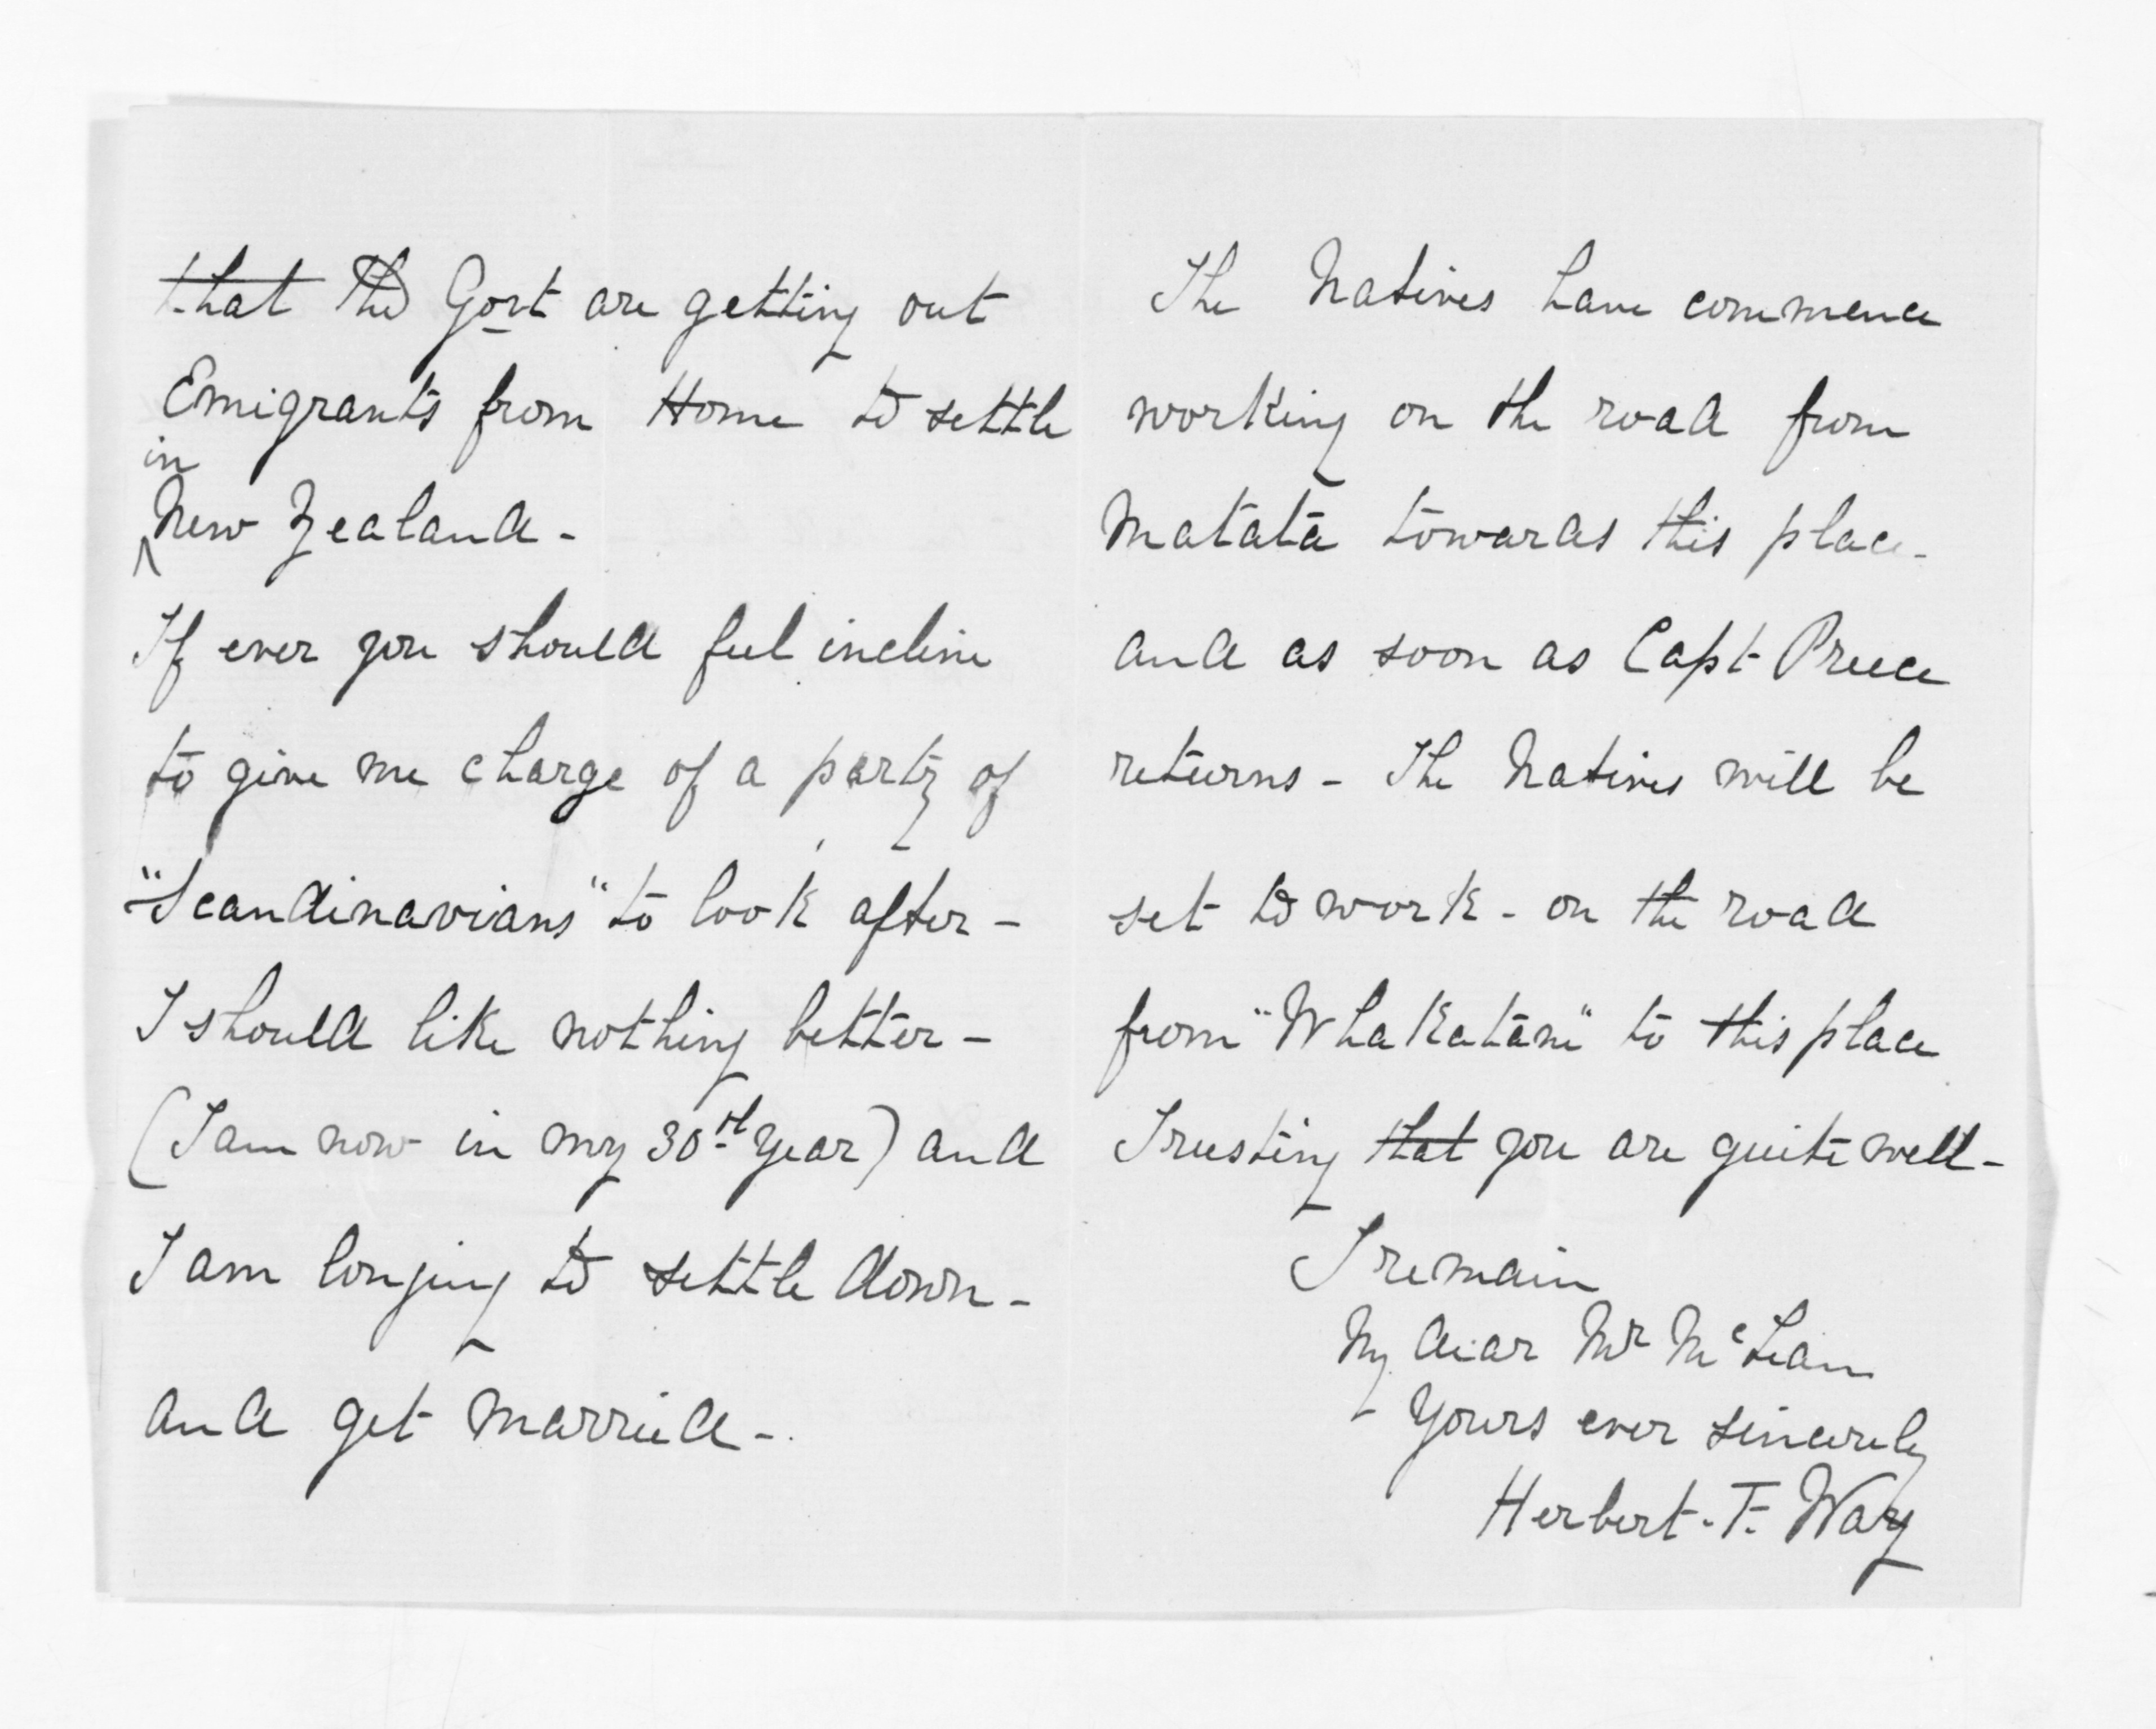 that the Govt are getting out
Emigrants from Home to settle
in
New Zealand -
If ever you should feel incline
to give me charge of a party of
"Scandinavians" to look after -
I should like nothing better -
(I am now in my 30th year) and
I am longing to settle down -
and get married -
The Natives have commence
working on the road from
Matata towards this place -
and as soon as Capt Preece
returns - The Natives will be
set to work - on the road
from "Whakatane" to this place
Trusting that you are quite well -
I remain
My dear Mr McLean
Yours ever sincerely
Herbert. F. Way